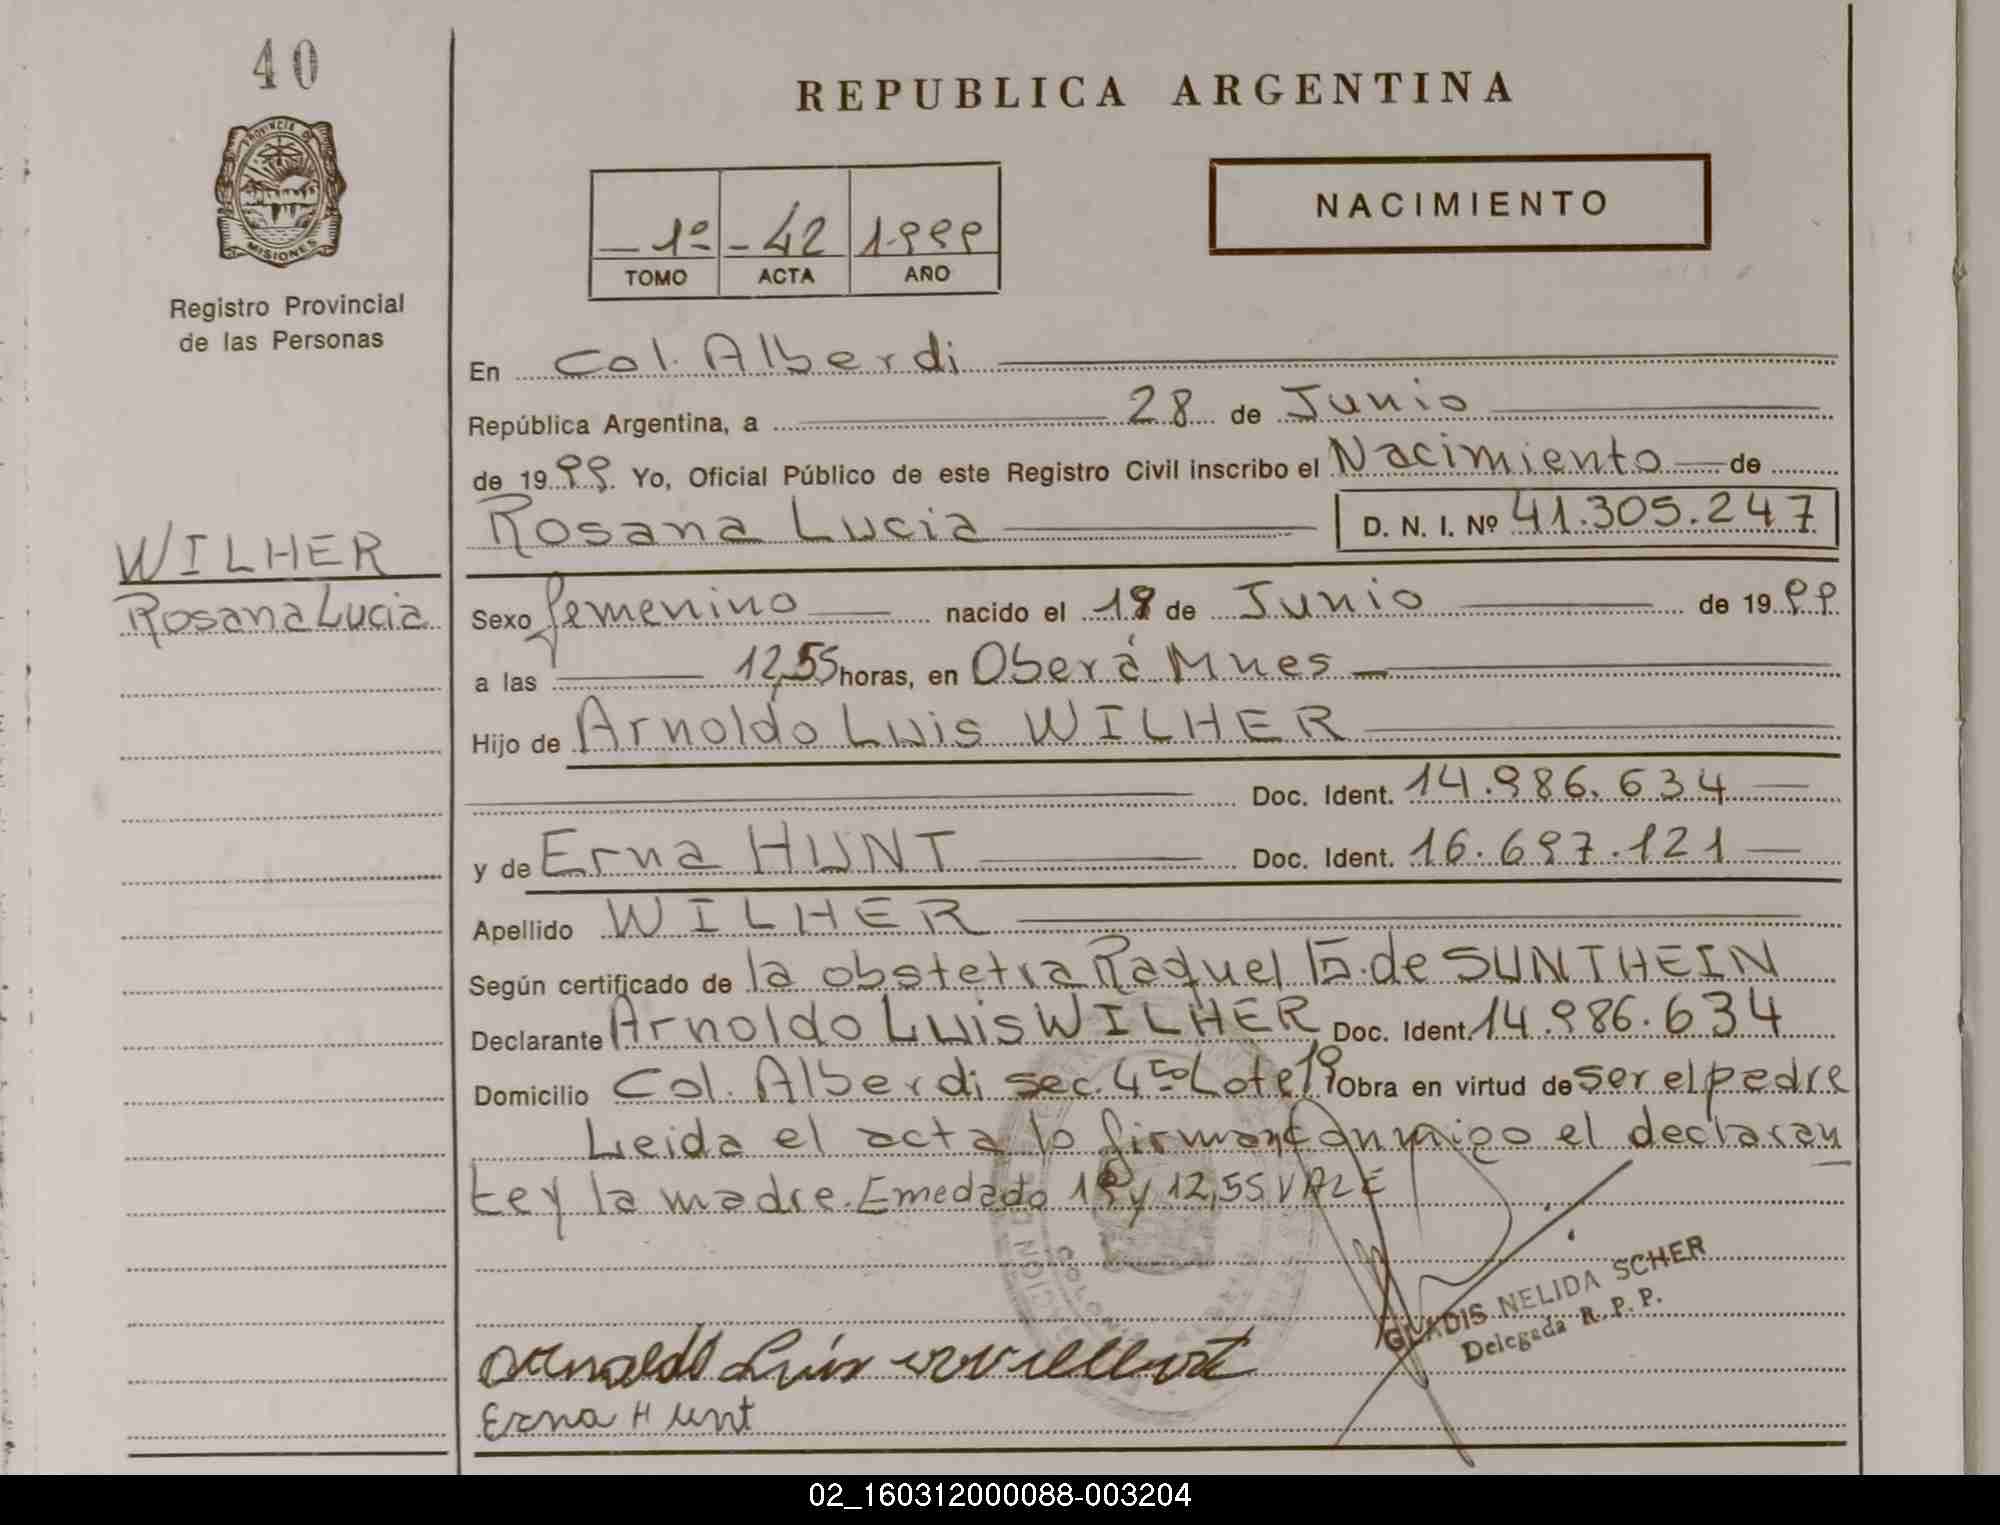 40
PROVINCIA DE
MISIONES
Registro Provincial
de las Personas
REPUBLICA ARGENTINA
1º 42 1.999
TOMO ACTA AÑO
NACIMIENTO
En Col. Alberdi
República Argentina, a 28 de Junio
de 1999 Yo, Oficial Público de este Registro Civil inscribo el Nacimiento de
Rosana Lucia D. N. I. Nº 41.305.247
WILHER
Rosana Lucia
Sexo femenino nacido el de Junio de 1999
a las 12,55 horas, en Oberá Mnes
Hijo de Arnoldo Luis WILHER
Doc. Ident. 14.986.634
y de Erna HUNT Doc. Ident. 16.697.121
Apellido WILHER
Según certificado de la obstetra Raquel de SUNTHEIN
Declarante Arnoldo Luis WILHER Doc. Ident. 14.986.634
Domicilio Col. Alberdi sec. 4ta Lote 19 Obra en virtud de ser el padre
Leida el acta lo firman conmigo el declaran
te y la madre. Emedado y 12,55 VALE
GLADIS NELIDA SCHER
Delegada R. P. P.
Arnoldo Luis
Erna Hunt
02_160312000088-003204